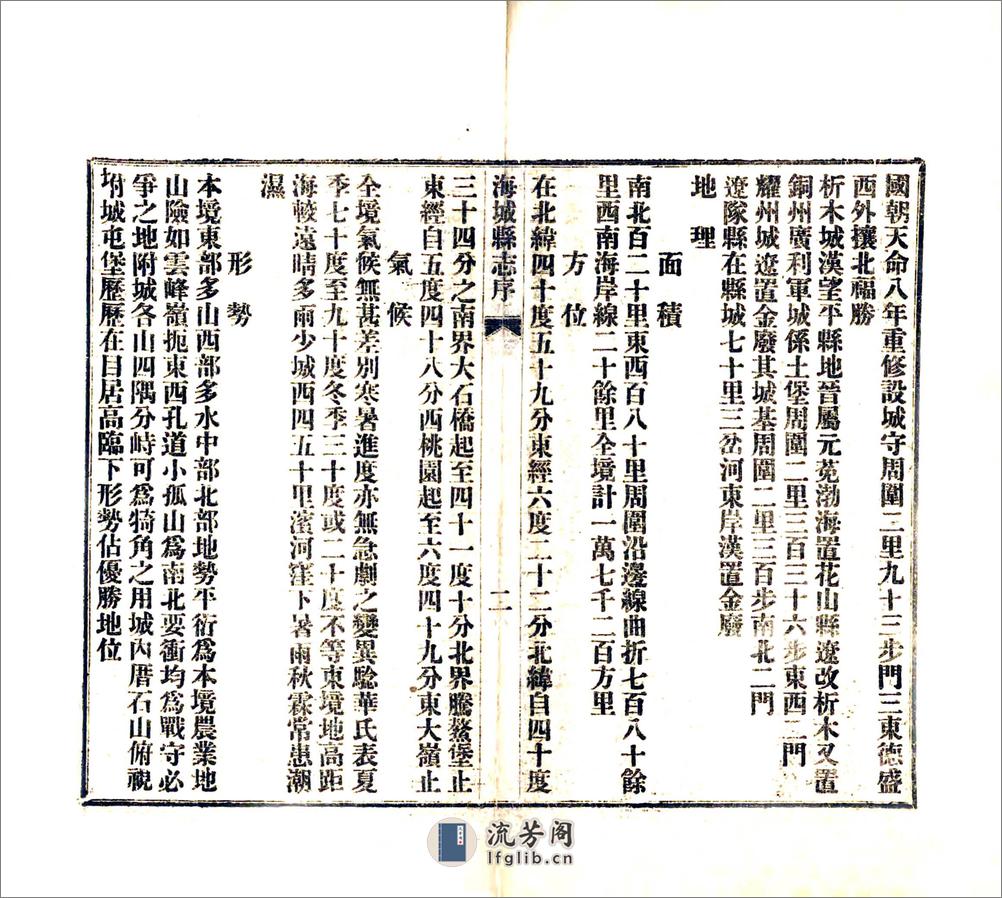 國朝天命八年重修設城守周圍二里九十三步門三東德盛
西外攘北福勝
析木城漢望平縣地晉屬元菟渤海置花山縣遼改析木又置
銅州廣利軍城係土堡周圍二里三百三十六步東西二門
耀州城遼置金廢其城基周圍二里三百步南北二門
遼隊縣在縣城七十里三岔河東岸漢置金廢
地理
面積
南北百二十里東西百八十里周圍沿邊線曲折七百八十餘
里西南海岸線二十餘里全境計一萬七千二百方里
方位
在北緯四十度五十九分東經六度二十二分北緯自四十度
海城縣志序
二
三十四分之南界大石橋起至四十一度十分北界騰鰲堡止
東經自五度四十八分西桃園起至六度四十九分東大嶺止
氣候
全境氣候無甚差別寒暑進度亦無急劇之變異驗華氏表夏
季七十度至九十度冬季三十度或二十度不等東境地高距
海較遠晴多雨少城西四五十里濱河窪下暑雨秋霖常患潮
濕
形勢
本境東部多山西部多水中部北部地勢平衍爲本境農業地
山險如雲峰嶺扼東西孔道小孤山爲南北要衝均爲戰守必
爭之地附城各山四隅分峙可爲犄角之用城內厝石山俯視
坿城屯堡歷歷在目居高臨下形勢佔優勝地位
流芳阁
lfglib.cn